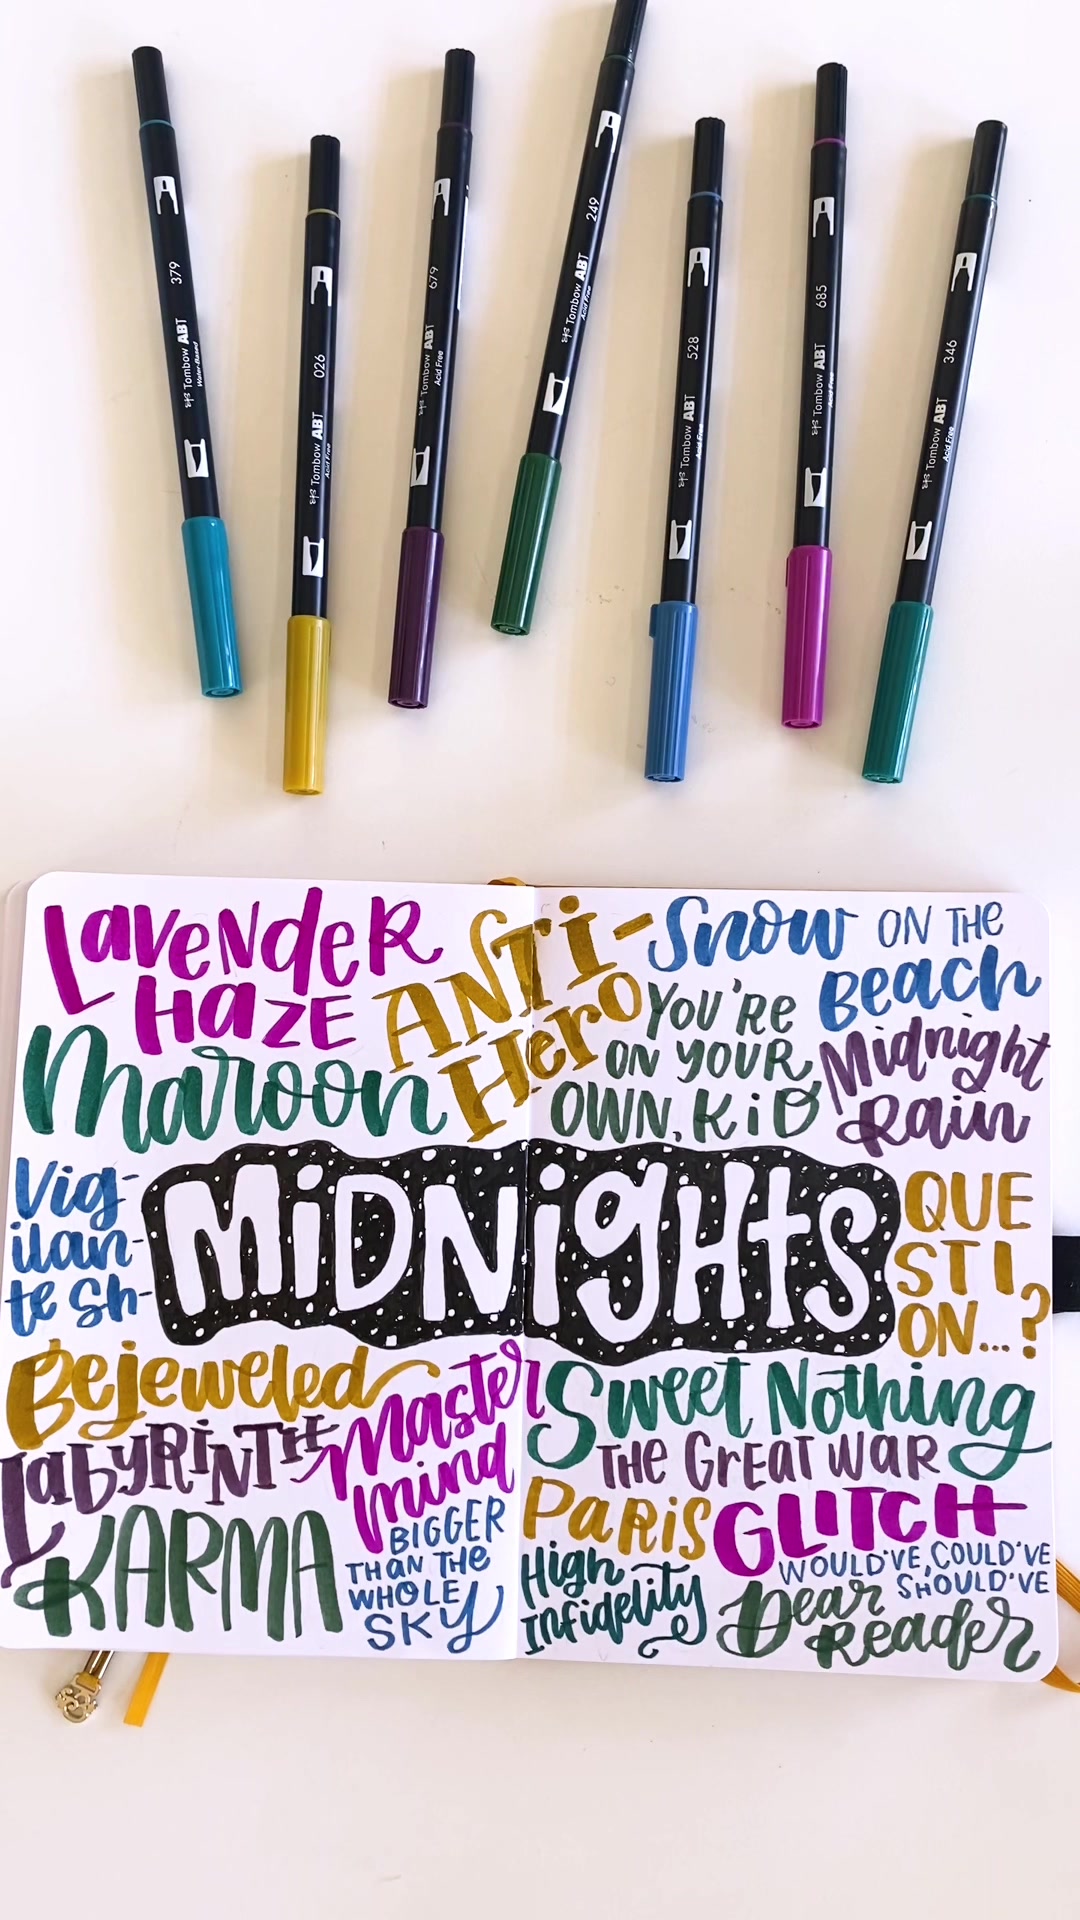 379
Tombow ABT
Water-Based
026
Tombow ABT
Acid Free
679
Tombow ABT
Acid Free
249
Tombow ABT
Acid Free
528
Tombow ABT
Acid Free
685
Tombow ABT
Acid Free
346
Tombow ABT
Acid Free
Lavender
Haze
Anti-
Hero
Snow ON THE
Beach
Maroon
You're
ON YOUR
OWN, KiD
Midnight
Rain
Vig-
ilan-
te Sh-
MiDNigHtS
QUE
STI
ON...?
Bejeweled
LabyRiNTH
Master
mind
Sweet Nothing
THE GREAT WAR
KARMA
BIGGER
THAN THE
WHOLE
SKY
PaRiS
GLITCH
High
Infidelity
WOULD'VE, COULD'VE
SHOULD'VE
Dear
Reader